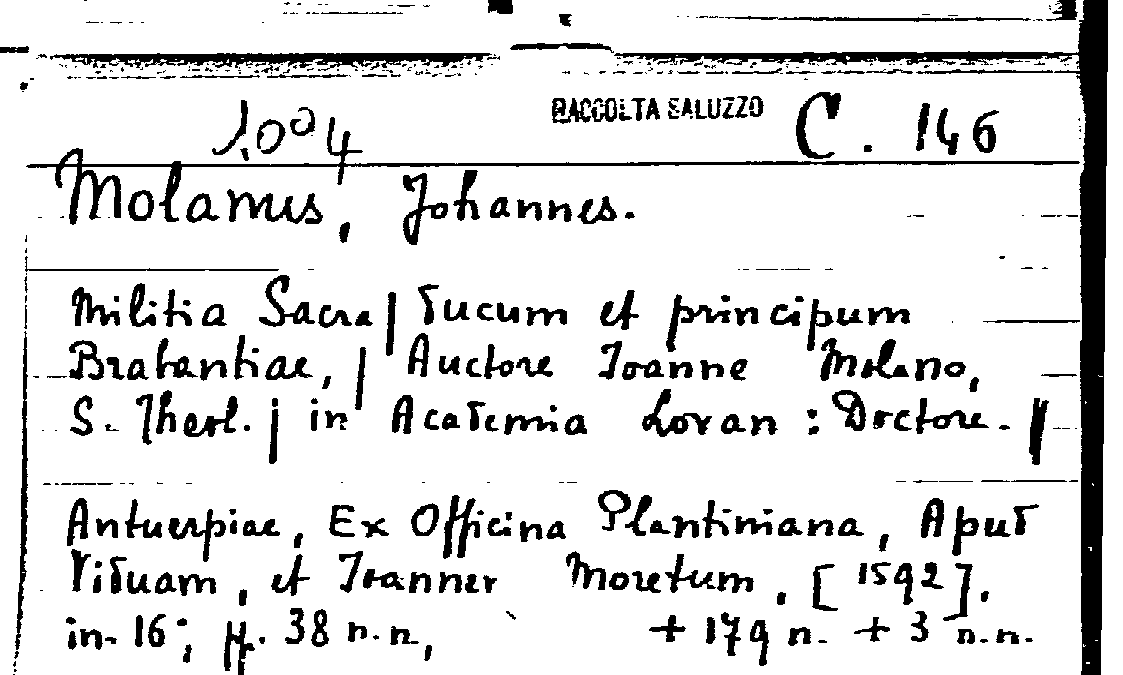 1004 RACCOLTA SALUZZO C. 146
Molanus, Johannes.
Militia Sacra | ducum et principum
Brabantiae, | Auctore Ioanne Molano,
S. Theol. | in Academia Lovan : Doctore. ||
Antuerpiae, Ex Officina Plantiniana, Apud
Viduam, et Ioannem Moretum, [1592].
in-16°; ff. 38 n.n, + 179 n. + 3 n.n.